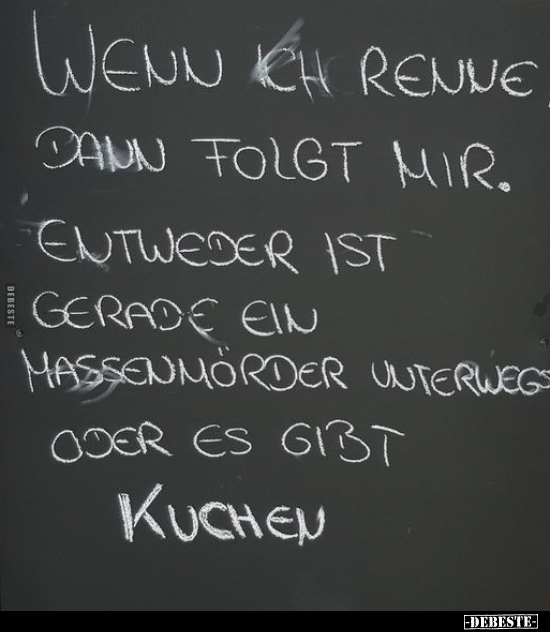 WENN ICH RENNE,
DANN FOLGT MIR.
ENTWEDER IST
GERADE EIN
MASSENMÖRDER UNTERWEGS
ODER ES GIBT
KUCHEN
DEBESTE
-DEBESTE-